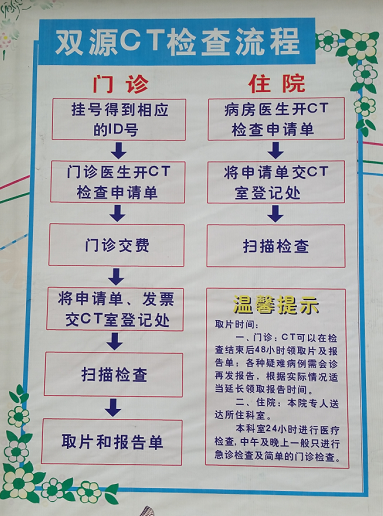 双源CT检查流程
门诊
挂号得到相应
的ID号
门诊医生开CT
检查申请单
门诊交费
将申请单、发票
交CT室登记处
扫描检查
取片和报告单
住院
病房医生开CT
检查申请单
将申请单交CT
室登记处
扫描检查
温馨提示
取片时间:
一、门诊:CT可以在检
查结束后48小时领取片及报
告单;各种疑难病例需会诊
再发报告,根据实际情况适
当延长领取报告时间。
二、住院:本院专人送
达所住科室。
本科室24小时进行医疗
检查,中午及晚上一般只进行
急诊检查及简单的门诊检查。